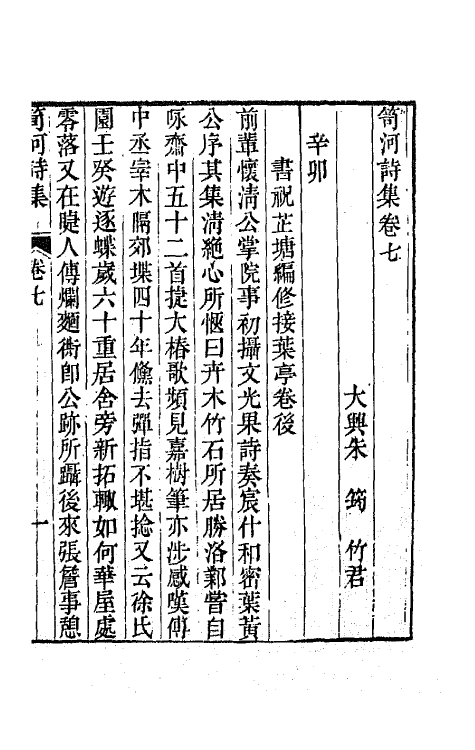 笥河詩集卷七
大興朱 筠 竹君
辛卯
書祝芷塘編修接葉亭卷後
前輩懷淸公掌院事初攝文光果詩奏宸什和密葉黃
公序其集淸絶心所愜曰卉木竹石所居勝洛鄴嘗自
咏齋中五十二首捷大椿歌頻見嘉樹筆亦涉感嘆傅
中丞宰木隔郊堞四十年儵去彈指不堪捻又云徐氏
園壬癸遊逐蝶歲六十重居舍旁新拓輒如何華屋處
零落又在睫人傳爛麵衚卽公跡所躡後來張詹事憩
笥河詩集
卷七
一